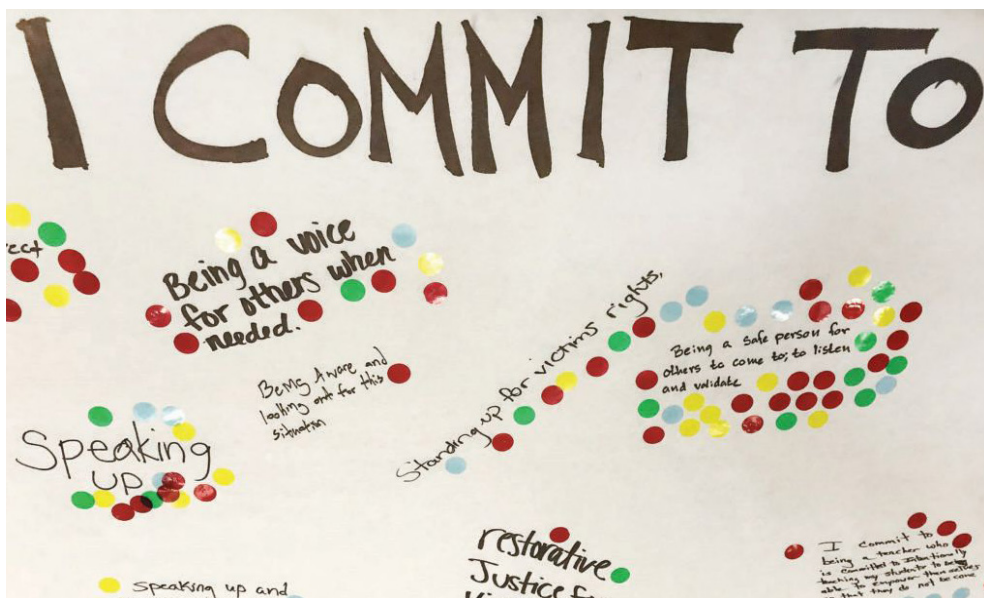 I COMMIT TO
ect
Being a voice
for others when
needed.
Being Aware and
looking out for this
situation
Standing up for victims rights,
Being a safe person for
others to come to; to listen
and validate
Speaking
up
speaking up and
restorative
Justice f
I commit to
being a teacher who
is committed to Intentionally
teaching my students to be
able to empower themselves
that they do not become